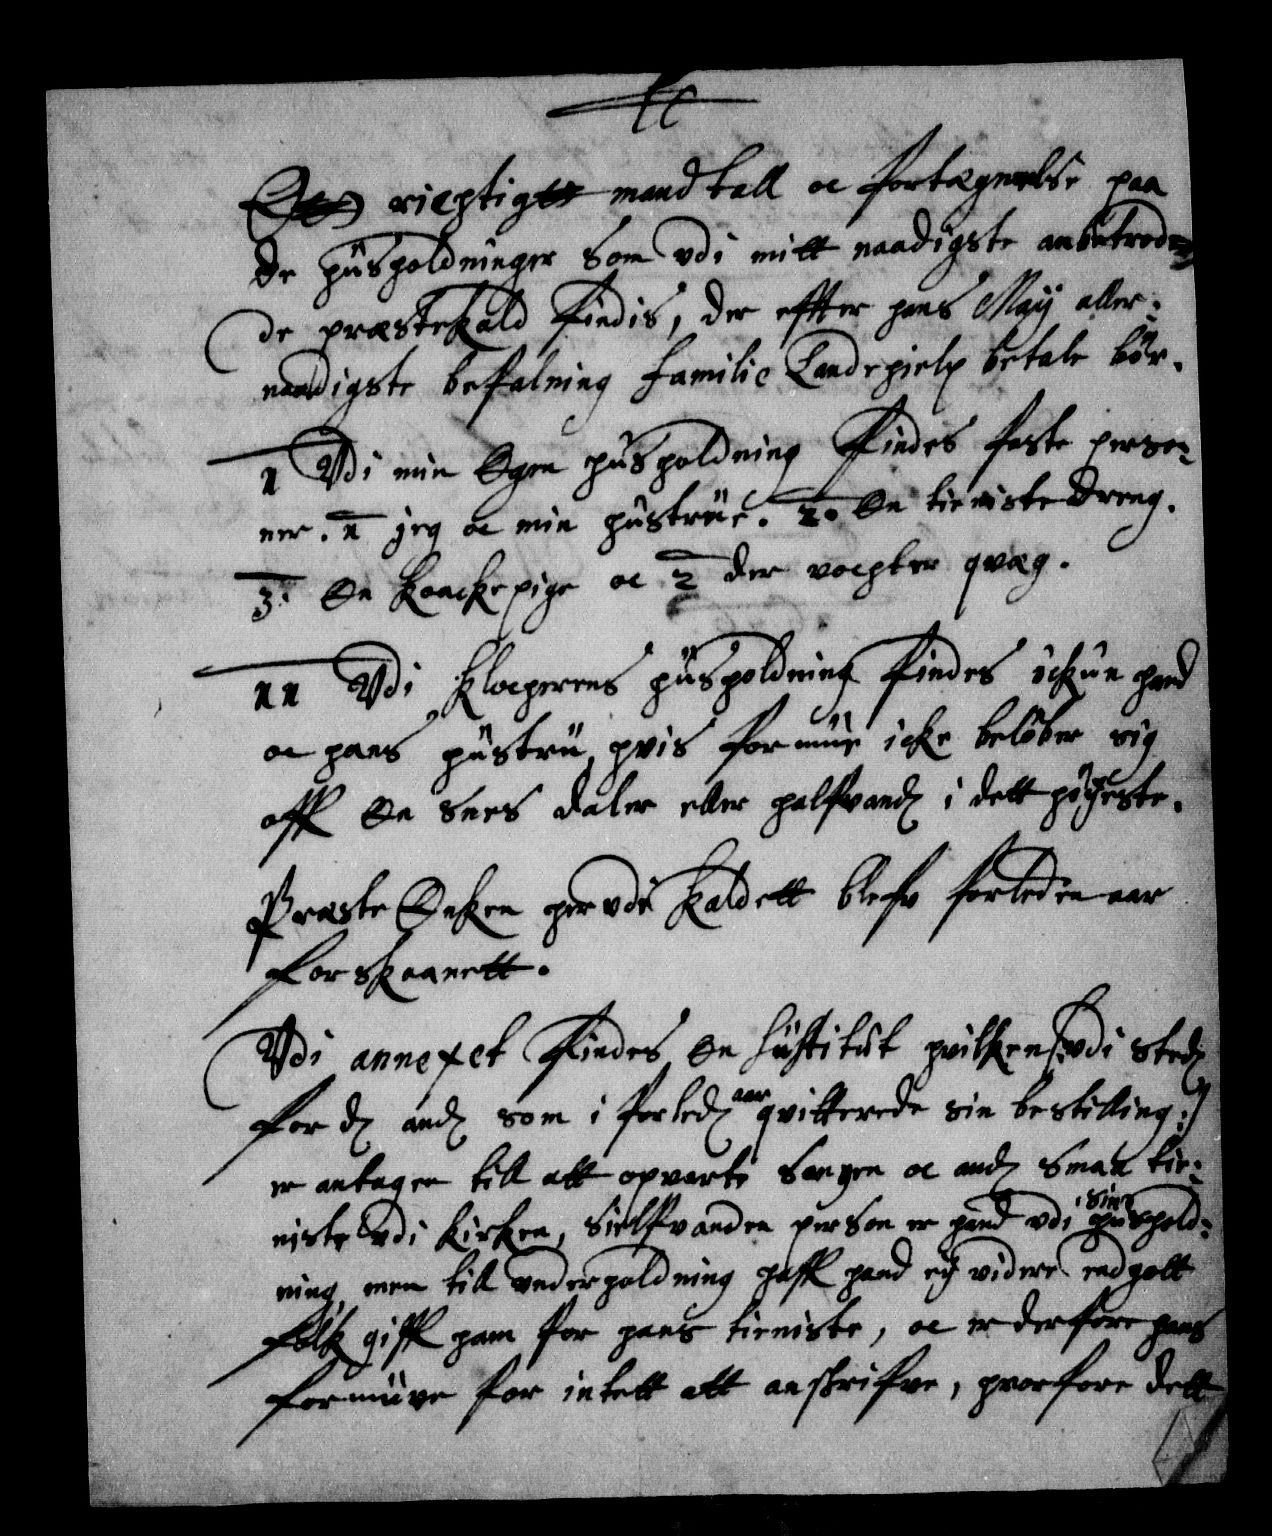 Ett richtigtt mandtall oc fortægnelse paa
de huusholdninger som vdi mitt naadigste anbetrod¬
de præstekald findis, der effter hans May aller:
naadigste befalning familie Landehielp betale bör.
1 Vdi min Egen huusholdning findes faste perso¬
ner. 1 jeg oc min hustrue. 2. En tieniste dreng.
3. En kaackepige oc 2 der vochter qvæg.
11 Vdi klocherens huusholdning findes ickun hand
oc hans hustru, hvis formue icke belöber sig
aff En snes daler eller halfvand i dett höyeste.
Præste Enken her vdi kaldett blef forleden aar
forskaanett.
Vdi annexet findes En Sustitut hvilken /: vdi sted
for d and som i forled aar qvitterede sin bestilling :/
er antagen till att opvarte sangen oc and smaa tie¬
niste vdi kirken, sielfvanden person er hand vdi sin huushold¬
ning, men till vnderholdning haff hand ey videre end gott
folk giff ham for hans tieniste, oc er derfore hans
formuve for intett att anskrifve, hvorfore dett